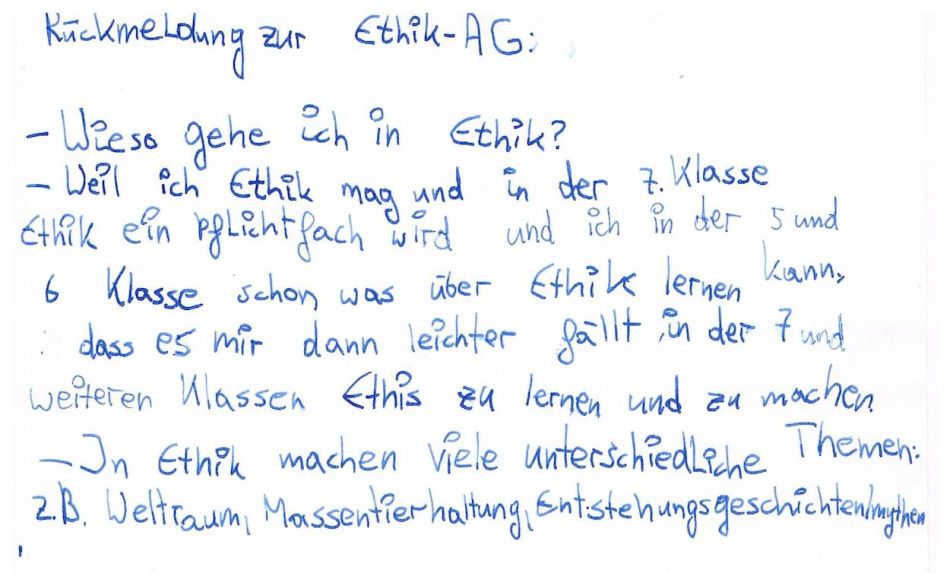 Rückmeldung zur Ethik-AG:
- Wieso gehe ich in Ethik?
- Weil ich Ethik mag und in der 7. Klasse
Ethik ein Pflichtfach wird und ich in der 5 und
6 Klasse schon was über Ethik lernen kann,
dass es mir dann leichter fällt in der 7 und
weiteren Klassen Ethis zu lernen und zu machen.
- In Ethik machen viele unterschiedliche Themen:
z.B. Weltraum, Massentierhaltung, Entstehungsgeschichten/mythen